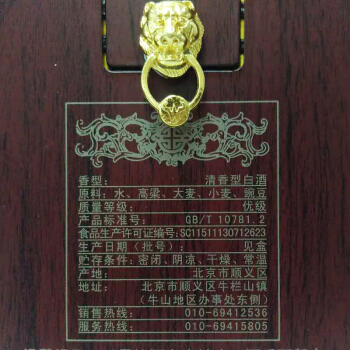 香型: 清香型白酒
原料: 水、高粱、大麦、小麦、豌豆
质量等级: 优级
产品标准号: GB/T 10781.2
食品生产许可证编号: SC11511130712623
生产日期(批号): 见盒
贮存条件: 密闭、阴凉、干燥、常温
产地: 北京市顺义区
地址: 北京市顺义区牛栏山镇
(牛山地区办事处东侧)
销售热线: 010-69412536
服务热线: 010-69415805